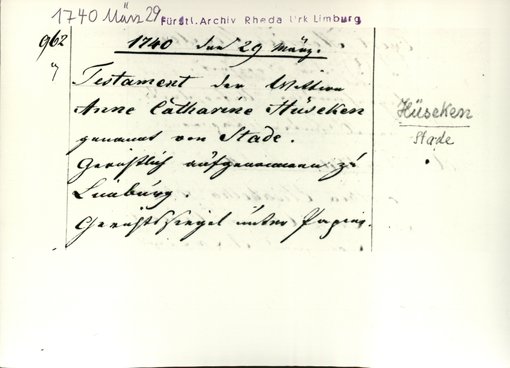 1740 März 29.
Fürstl. Archiv Rheda Urk Limburg
962
1740 den 29 März.
Testament der Wittwe
Anne Catharine Hüseken
genannt von Stade.
Gerichtlich aufgenommen zu
Limburg.
Gerichtssiegel unter Papier.
Hüseken
Stade